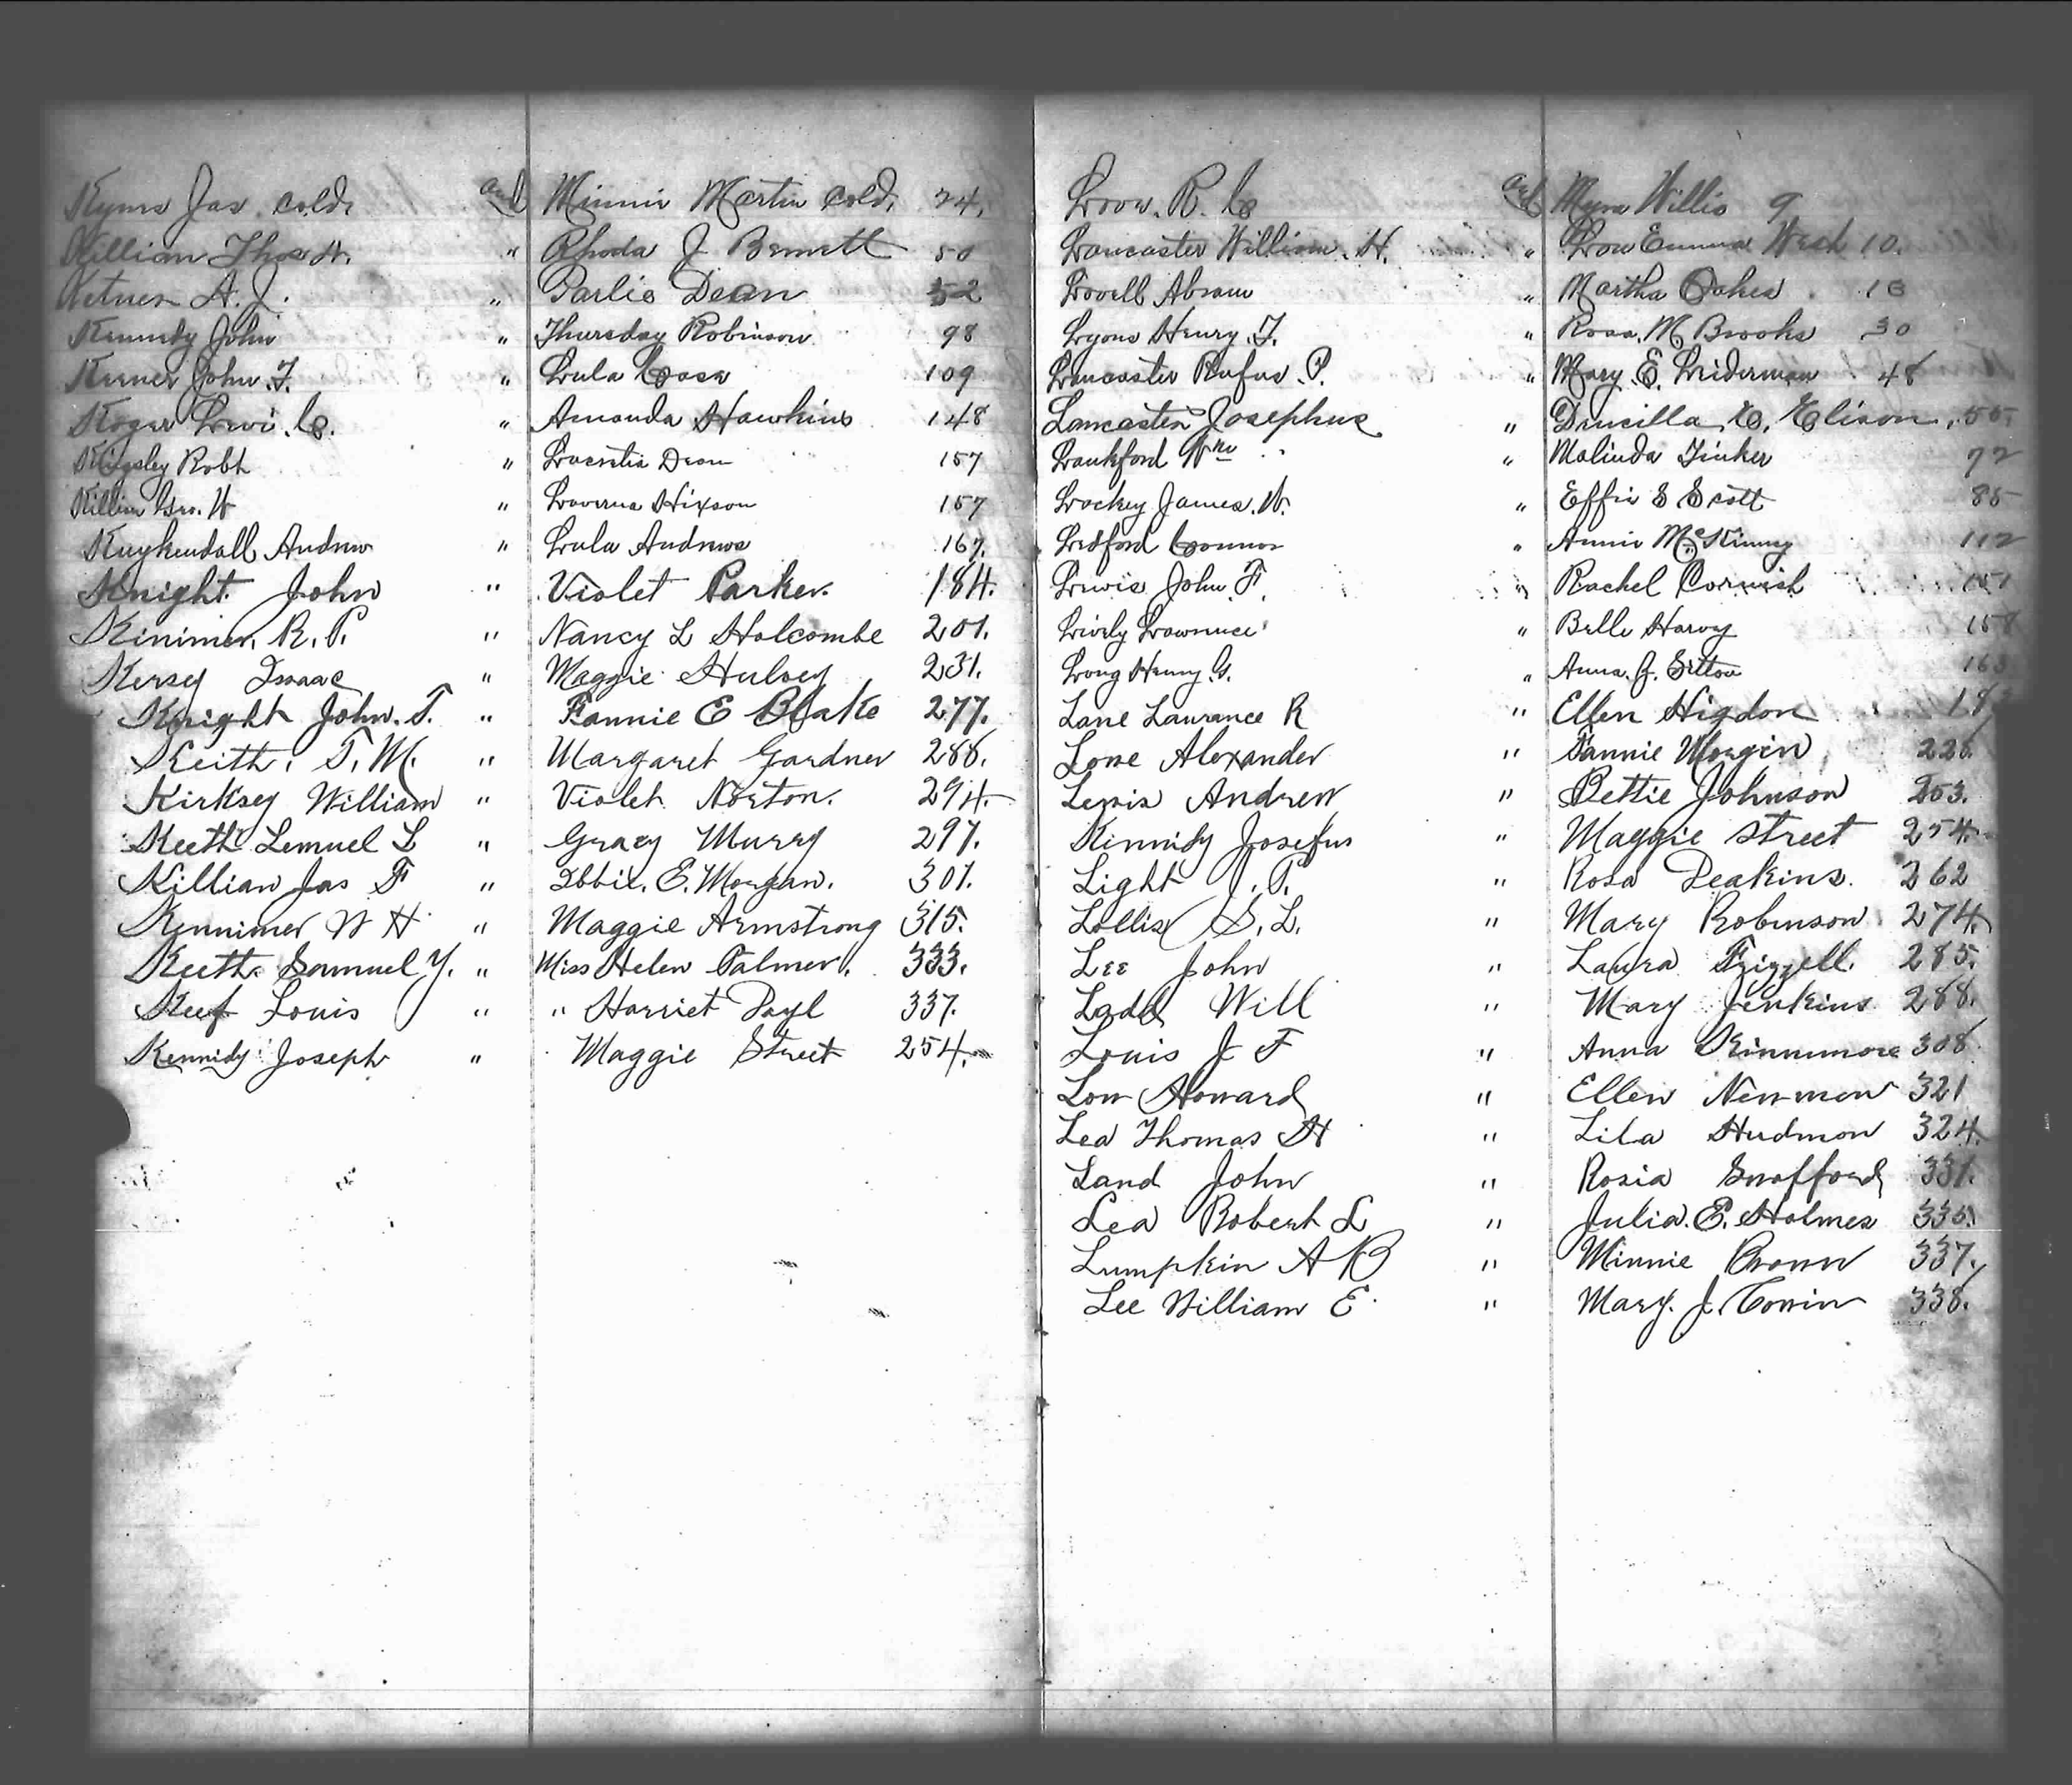 Kyms Jas. cold. and Minnie Martin cold. 24.
Killian Thos H. " Rhoda J Bennett 50
Ketner A. J. " Parlie Dean 52
Kennedy John " Thursday Robinson 98
Kerner John. F. " Lula Case 109
Koger Levi. C. " Amanda Hawkins 148
Kingsley Robt " Lucretia Dean 157
Killian Geo. W " Laverna Hixson 157
Kuykendall Andrew " Lula Andrews 167.
Knight John " Violet Parker. 184.
Kinimer, R. P. " Nancy L Holcombe 201.
Kersey Isaac " Maggie Hulsey 231.
Knight John. T. " Fannie E Blake 277.
Keith, T. M. " Margaret Gardner 288.
Kirksey William " Violet Norton. 294.
Keeth Lemuel L " Gracy Murry 297.
Killian Jas F " Ibbie. E. Morgan. 301.
Kennimer W H " Maggie Armstrong 315.
Keeth Samuel Y. " Miss Helen Palmer. 333.
Keef Louis " " Harriet 337.
Kennidy Joseph " Maggie Street 254.
Love. R. C and Myra Willis 9
Lancaster William. H. " Lou Emma West 10.
Lovell Abram " Martha Oakes 18
Lyons Henry. F. " Rosa. M. Brooks 30
Lancaster Rufus. P. " Mary. E. Liderman 48
Lancaster Josephus " Drucilla, E. Elison. 55.
Lankford Wm " Malinda Tinker 72
Lockey James. W. " Effie E Scott 85
Ledford Connor " Annie McKinney 112
Lewis John. F. " Rachel Cornish 151
Lively Lawrence " Belle Harvy 158
Long Henry. G. " Anna. J. Sitton 163
Lane Laurance R " Ellen Higdon
Lone Alexander " Fannie Morgin
Lewis Andrew " Bettie Johnson 253.
Kinnidy Josefus " Maggie Street 254.
Light J. P. " Rosa Deakins. 262
Lollis S. L. " Mary Robinson 274.
Lee John " Laura Frizzell. 285.
Ladd Will " Mary Jenkins 288.
Louis J F " Anna Kinnimore 308
Low Howard " Ellen Newman 321
Lea Thomas H " Lila Hudmon 324.
Land John " Rosia Swafford 331.
Lea Robert L " Julia. E. Holmes 335.
Lumpkin A B " Minnie Brown 337.
Lee William E " Mary. J. 338.